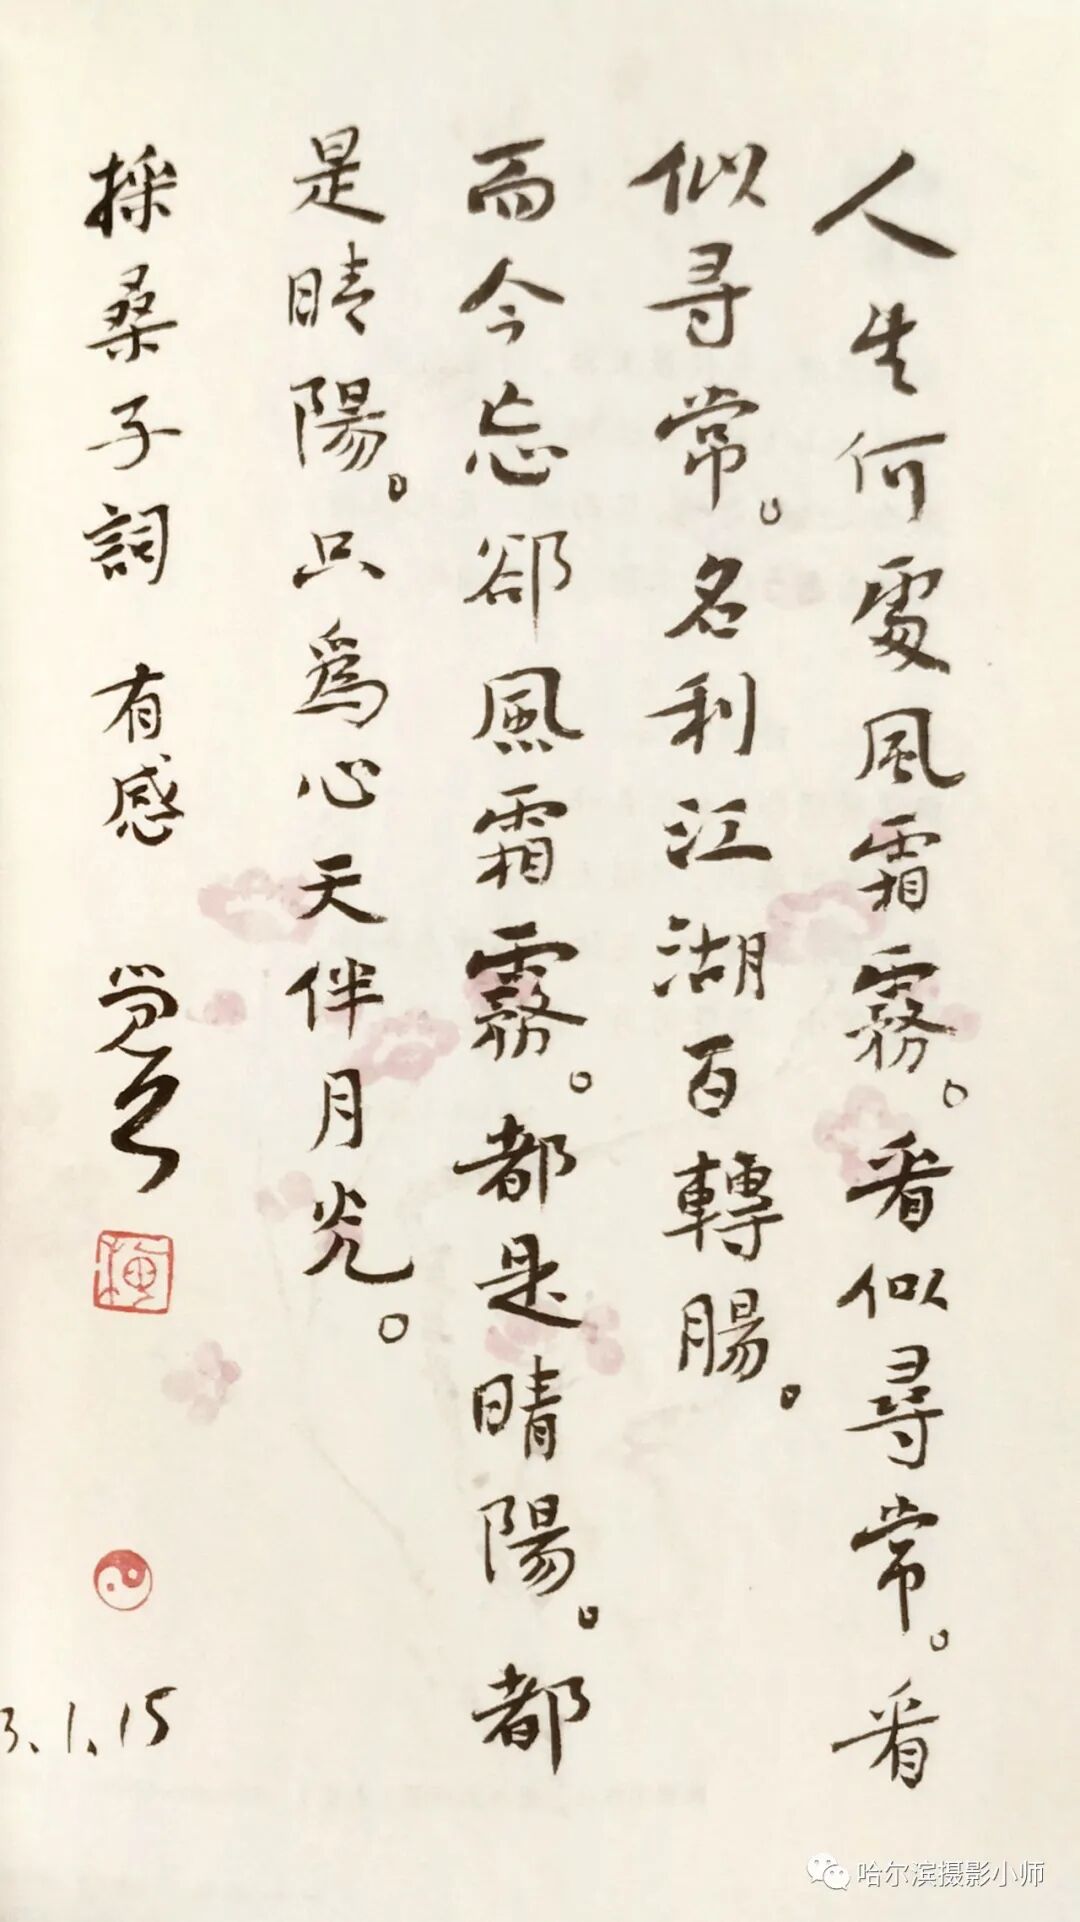 人生何處風霜霧。看似尋常。看
似尋常。名利江湖百轉腸。
而今忘卻風霜霧。都是晴陽。都
是晴陽。只為心天伴月光。
採桑子詞 有感
3.1.15
哈尔滨摄影小师